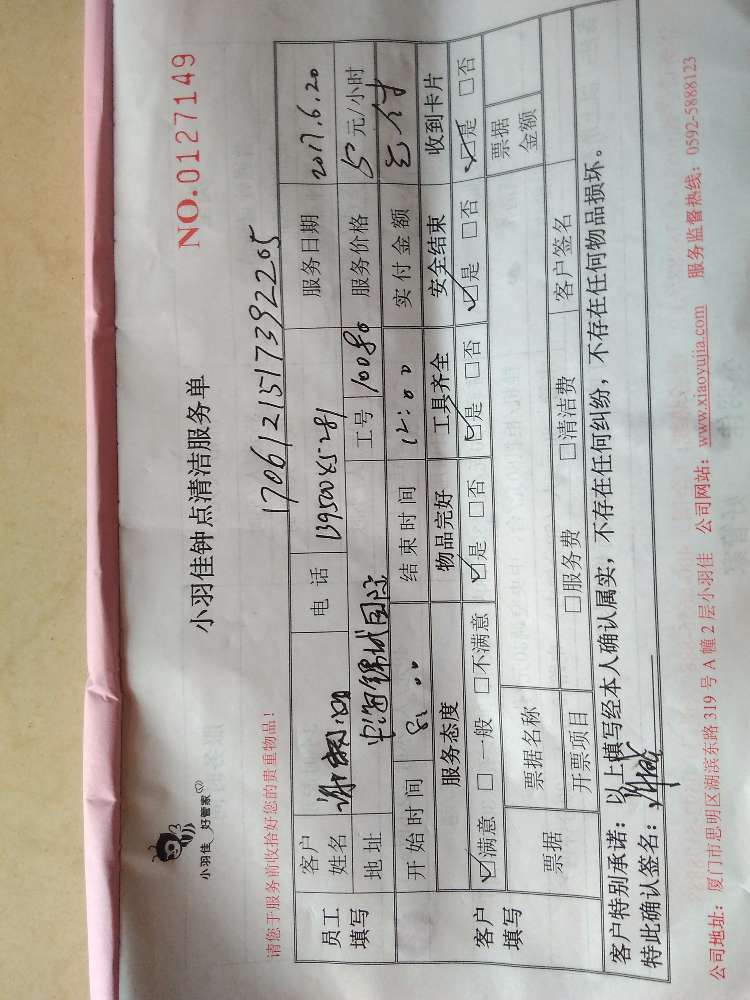 小羽佳 好管家
小羽佳钟点清洁服务单
NO.0127149
请您于服务前收拾好您的贵重物品！
1706121517392205
员工填写 客户姓名 谢 电话 服务日期 2017.6.20
地址 中海锦城国际 工号 10080 服务价格 元/小时
客户填写 开始时间 8:00 结束时间 12:00 实付金额 已付
服务态度 物品完好 工具齐全 安全结束 收到卡片
☑满意 □一般 □不满意 ☑是 □否 ☑是 □否 ☑是 □否 ☑是 □否
票据 票据名称 票据金额
开票项目 □服务费 □清洁费 客户签名
客户特别承诺：以上填写经本人确认属实，不存在任何纠纷，不存在任何物品损坏。
特此确认签名：
公司地址：厦门市思明区湖滨东路 319 号 A 幢 2 层小羽佳 公司网站：www.xiaoyujia.com 服务监督热线：0592-5888123